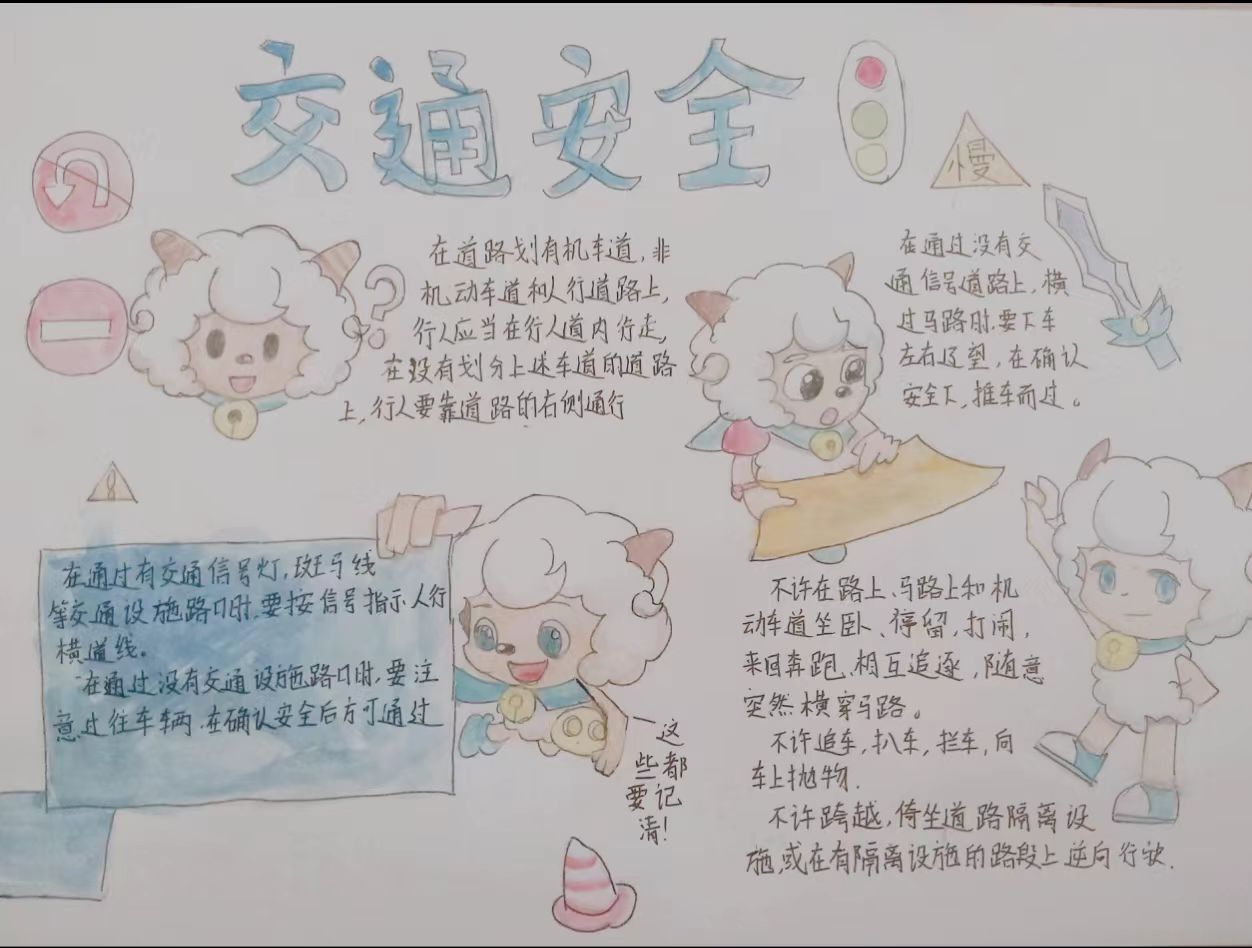 交通安全
慢
在道路划有机车道,非
机动车道和人行道路上,
行人应当在行人道内行走,
在没有划分上述车道的道路
上,行人要靠道路的右侧通行
?
在通过没有交
通信号道路上,横
过马路时.要下车
左右辽望,在确认
安全下,推车而过。
!
在通过有交通信号灯,斑马线
等交通设施路口时,要按信号指示人行
横道线。
在通过没有交通设施路口时,要注
意过往车辆.在确认安全后方可通过
这
些都
要记
清!
不许在路上、马路上和机
动车道坐卧、停留,打闹,
来回奔跑、相互追逐,随意
突然横穿马路。
不许追车,扒车,拦车,向
车上抛物.
不许跨越,倚坐道路隔离设
施,或在有隔离设施的路段上逆向行驶.